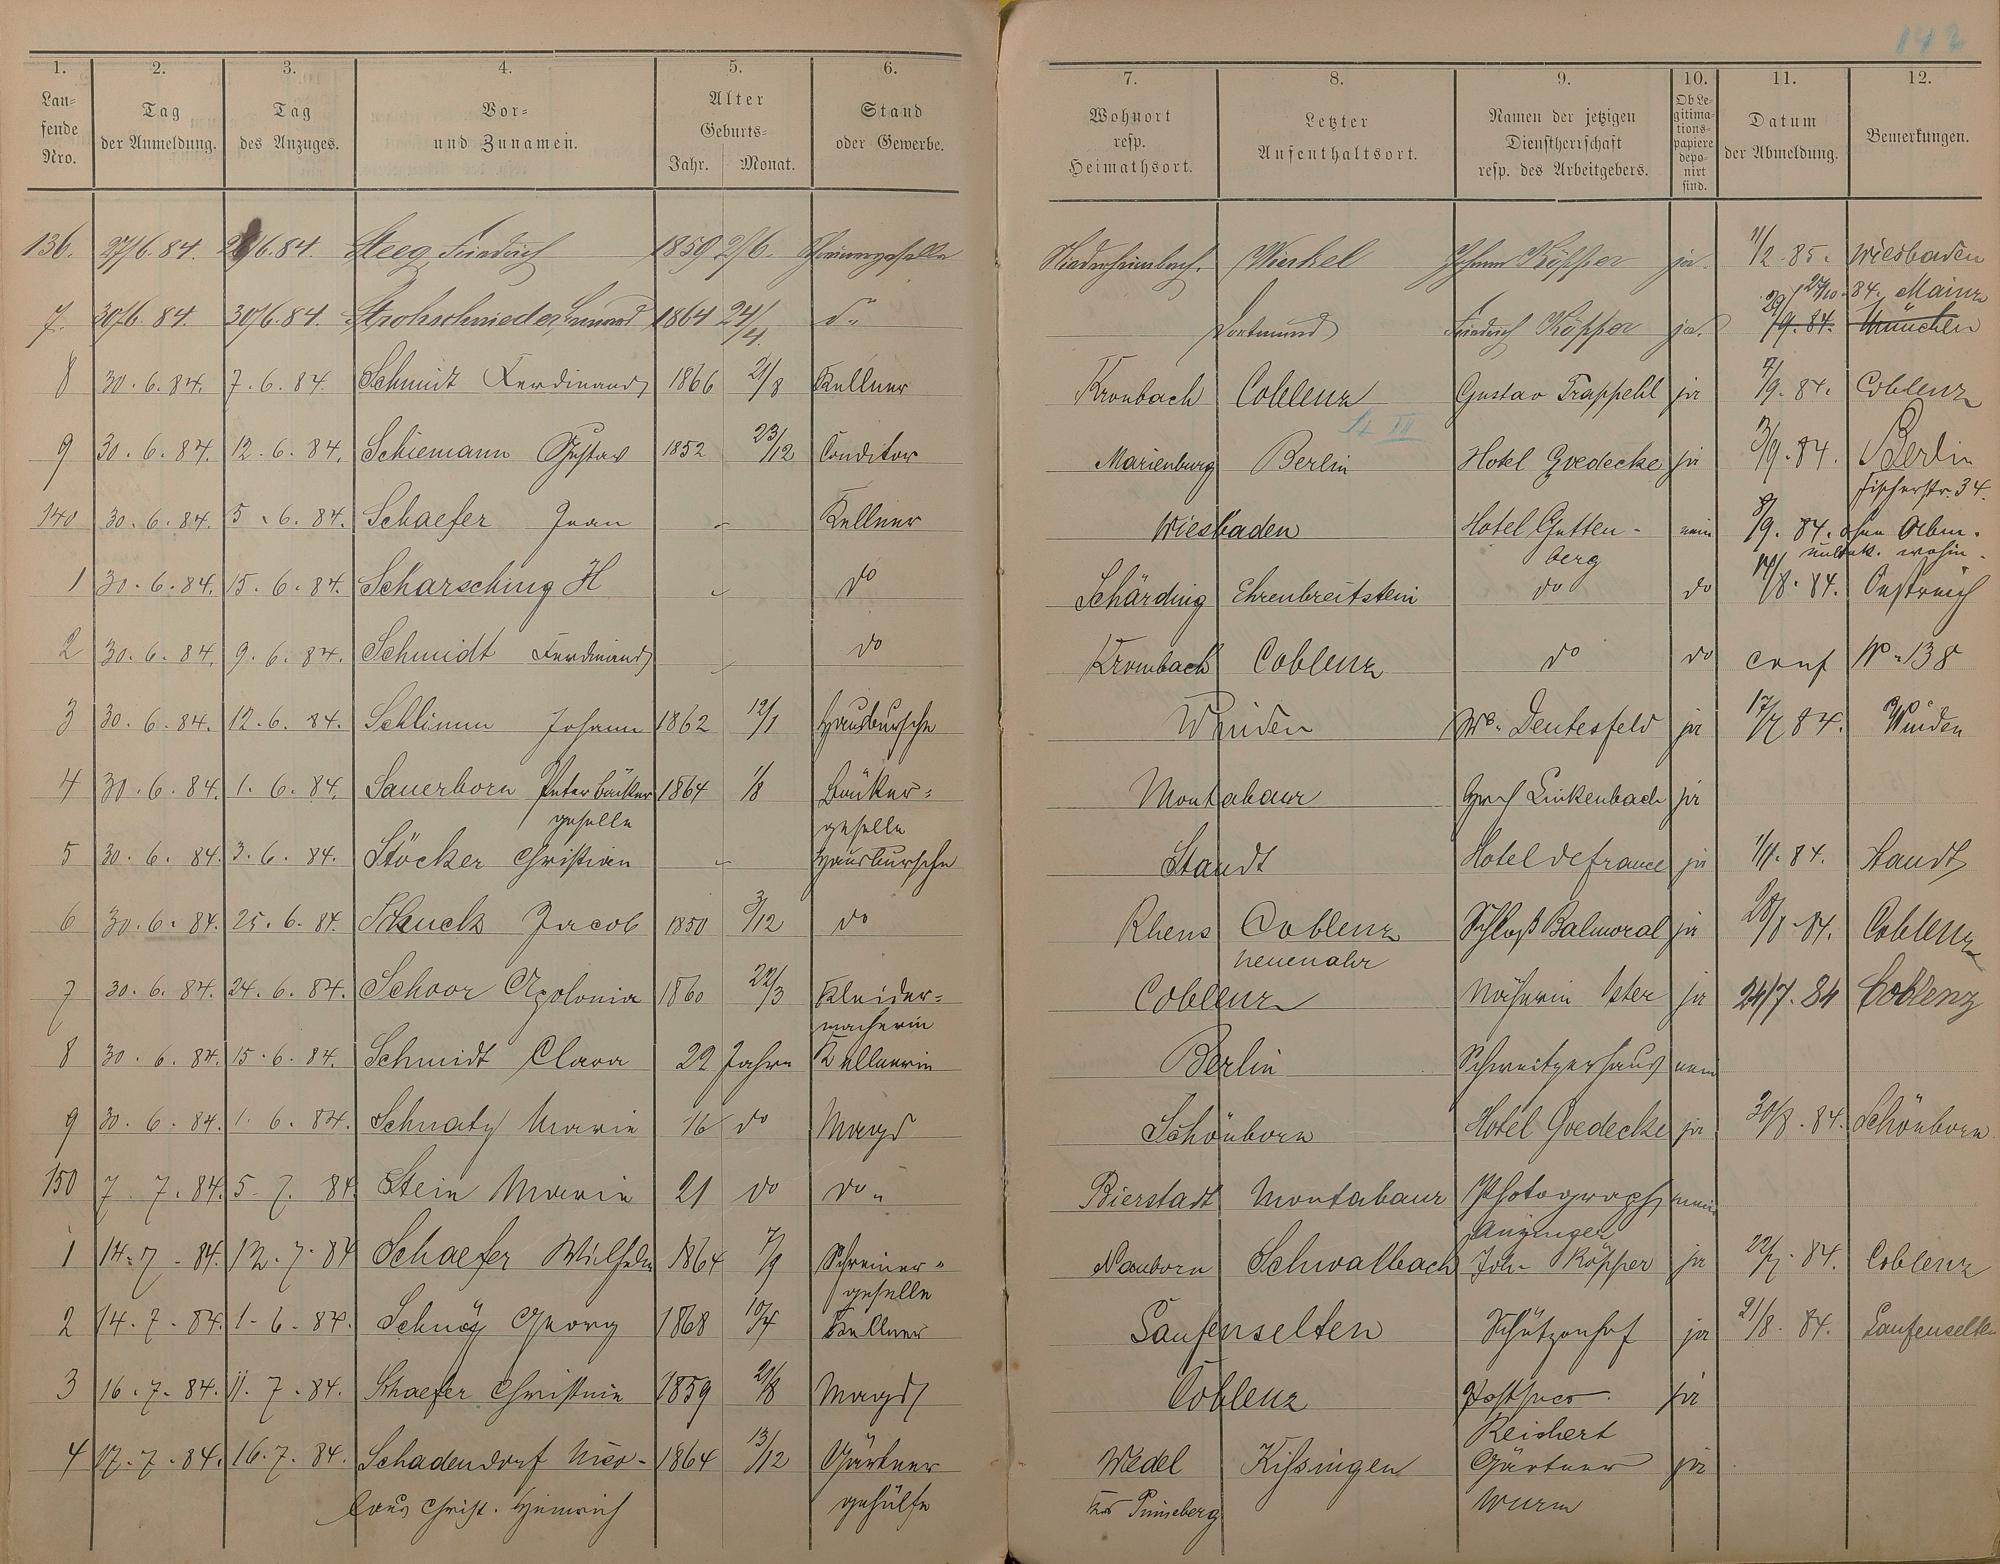 142
1. 2. 3. 4. 5. 6. 7. 8. 9. 10. 11. 12.
Lau-
fende
Nro.
Tag
der Anmeldung.
Tag
des Anzuges.
Vor-
und Zunamen.
Alter
Geburts-
Jahr. Monat.
Stand
oder Gewerbe.
Wohnort
resp.
Heimathsort.
Letzter
Aufenthaltsort.
Namen der jetzigen
Dienstherrschaft
resp. des Arbeitgebers.
Ob Le-
gitima-
tions-
papiere
depo-
nirt
sind.
Datum
der Abmeldung.
Bemerkungen.
136. 27/6. 84. /6. 84. Steeg, Friedrich 1859 2/6. Niederheimbach. Winkel Johann Köpper ja. 1/2. 85. Wiesbaden
27/10. 84. Mainz
7. 30/6. 84. 30/6. 84. Strohschnieder 1864 24/4. do Dortmund Friedrich Köpper ja. /9. 84. München
8 30. 6. 84. 7. 6. 84. Schmidt Ferdinand 1866 21/8 Kellner Krombach Coblenz Gustav Trappehl ja 7/9. 84. Coblenz
9 30. 6. 84. 12. 6. 84. Schiemann Gustav 1852 23/12 Conditor Marienburg Berlin Hotel Goedecke ja 3/9. 84. Berlin
Fischerstr. 34.
140 30. 6. 84. 5. 6. 84. Schaefer Jean " Kellner Wiesbaden Hotel Gutten- nein 8/9. 84. ohne Abm.
berg unbek. wohin.
1 30. 6. 84. 15. 6. 84. Scharsching H " do Schärding Ehrenbreitstein do do 14/8. 84. Oestreich
2 30. 6. 84. 9. 6. 84. Schmidt Ferdinand " do Krombach Coblenz do do conf No 138
3 30. 6. 84. 12. 6. 84. Schlimm Johann 1862 12/1 Hausbursche Winden Ww. Deutesfeld ja 17/7 84. Winden
4 30. 6. 84. 1. 6. 84. Sauerborn Peter Bäcker 1864 1/8 Bäcker- Montabaur Linkenbach ja
geselle geselle
5 30. 6. 84. 3. 6. 84. Stöcker Christian " Hausbursche Staudt Hotel de france ja 1/11. 84. Staudt
6 30. 6. 84. 25. 6. 84. Jacob 1850 3/12 do Rhens Coblenz Schloß Balmoral ja 28/8. 84. Coblenz
neuenahr
7 30. 6. 84. 24. 6. 84. Schoor Apolonia 1860 22/3 Kleider- Coblenz Näherin Oster ja 24/7. 84 Coblenz
macherin
8 30. 6. 84. 15. 6. 84. Schmidt Clara 22 Jahre Kellnerin Berlin Schweitzerhaus nein
9 30. 6. 84. 1. 6. 84. Schnatz Marie 16 do Magd Schönborn Hotel Goedecke ja 30/8. 84. Schönborn
150 7. 7. 84. 5. 7. 84. Stein Marie 21 do do " Bierstadt Montabaur Photograph nein
1 14. 7. 84. 12. 7. 84 Schaefer Wilhelm 1864 7/9 Schreiner- Nauborn Schwalbach Joh. Köpper ja 22/7. 84. Coblenz
geselle
2 14. 7. 84. 1. 6. 84. Georg 1868 10/4 Kellner Laufenselten Schützenhof ja 21/8. 84. Laufenselten
3 16. 7. 84. 11. 7. 84. Schaefer Christine 1859 21/8 Magd Coblenz ja
Reichert
4 17. 7. 84. 16. 7. 84. Schadendorf Nico- 1864 13/12 Gärtner Wedel Kissingen Gärtner ja
laus Christ. Heinrich gehülfe Pinneberg Wurm